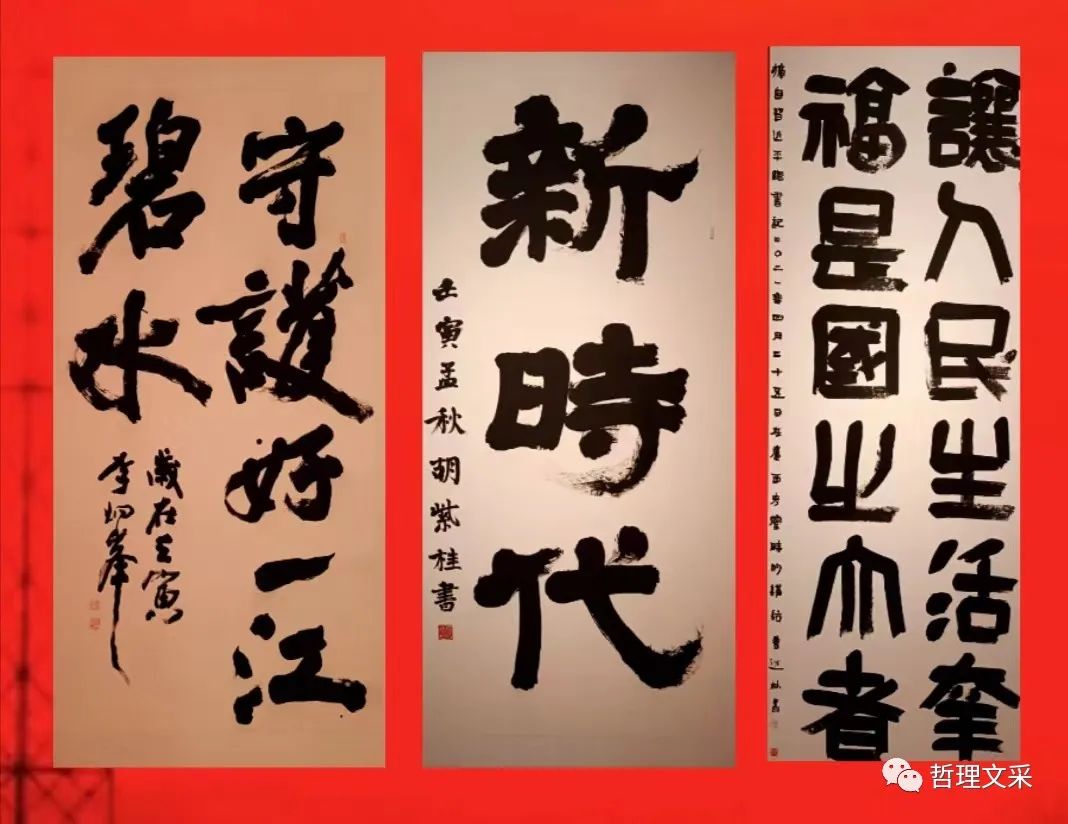 守護好一江
碧水
歲在壬寅
李峯
新時代
壬寅孟秋胡紫桂書
讓人民生活幸
福是國之大者
摘自習近平總書記二〇二一年四月二十五日在廣西考察時的講話
哲理文采